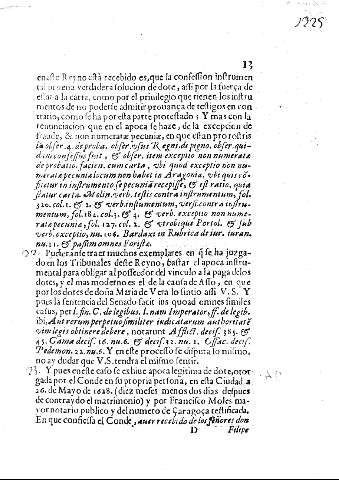 1225
13
en este Reyno està recebido es, que la confession instrumen
tal prueua verdadera solucion de dote, assi por la fuerça de
estar a la carta, como por el priuilegio que tienen los instru
mentos de no poderse admitir prouança de testigos en con
trario, como se ha por esta parte protestado; Y mas con la
renunciacion que en el apoca se haze, de la excepcion de
fraude, & non numeratæ pecuniæ, en que estan pro nostris
la obser. 4. de proba. obser. vsus Regni. de pigno. obser. qui-
dam confessus fuit, & obser. item exceptio non numeratæ
de probatio. facien. cum carta, vbi quod exceptio non nu-
meratæ pecuniæ locum non habet in Aragonia, vbi quis cō-
fitetur in instrumento se pecuniā recepisse, & est ratio, quia
statur cartæ. Molin. verb. testis contra instrumentum, fol.
320. col. 1. & 2. & verb. instrumentum, versi. contra instru-
mentum, fol. 184. col. 3. & 4. & verb. exceptio non nume-
ratæ pecuniæ, fol. 127. col. 2. & vtrobique Portol. & sub
verb. exceptio, nu. 106. Bardaxi in Rubrica de iur. iuran.
nu. 21. & passim omnes Foristæ.
Puedense traer muchos exemplares en q̃ se ha juzga-
do en los Tribunales deste Reyno, bastar el apoca instru-
mental para obligar al posseedor del vinculo a la paga de los
dotes, y el mas moderno es el de la causa de Asso, en que
por los dotes de doña Maria de Vera lo sintio assi V. S. Y
pues la sentencia del Senado facit ius quoad omnes similes
casus, per l. fin. C. de legibus. l. nam Imperator, ff. de legib.
ibi, Aut rerum perpetuò similiter iudicatarum authoritatē
vim legis obtinere debere, notarunt Afflict. decis. 385. &
45. Gama decis. 16. nu. 6. & decis. 32. nu. 1. Osasc. deci.
Pedemon. 22. nu. 6. Y en este processo se disputa lo mismo,
no ay dudar que V. S. tendra el mismo sentir.
Y pues en este caso se exhibe apoca legitima de dote, otor
gada por el Conde en su propria persona, en esta Ciudad a
26. de Mayo de 1628. (diez meses menos dos dias despues
de contraydo el matrimonio) y por Francisco Moles ma-
yor notario publico y del numero de Çaragoça testificada.
En que confiessa el Conde, auer recebido de los señores don
D Felipe